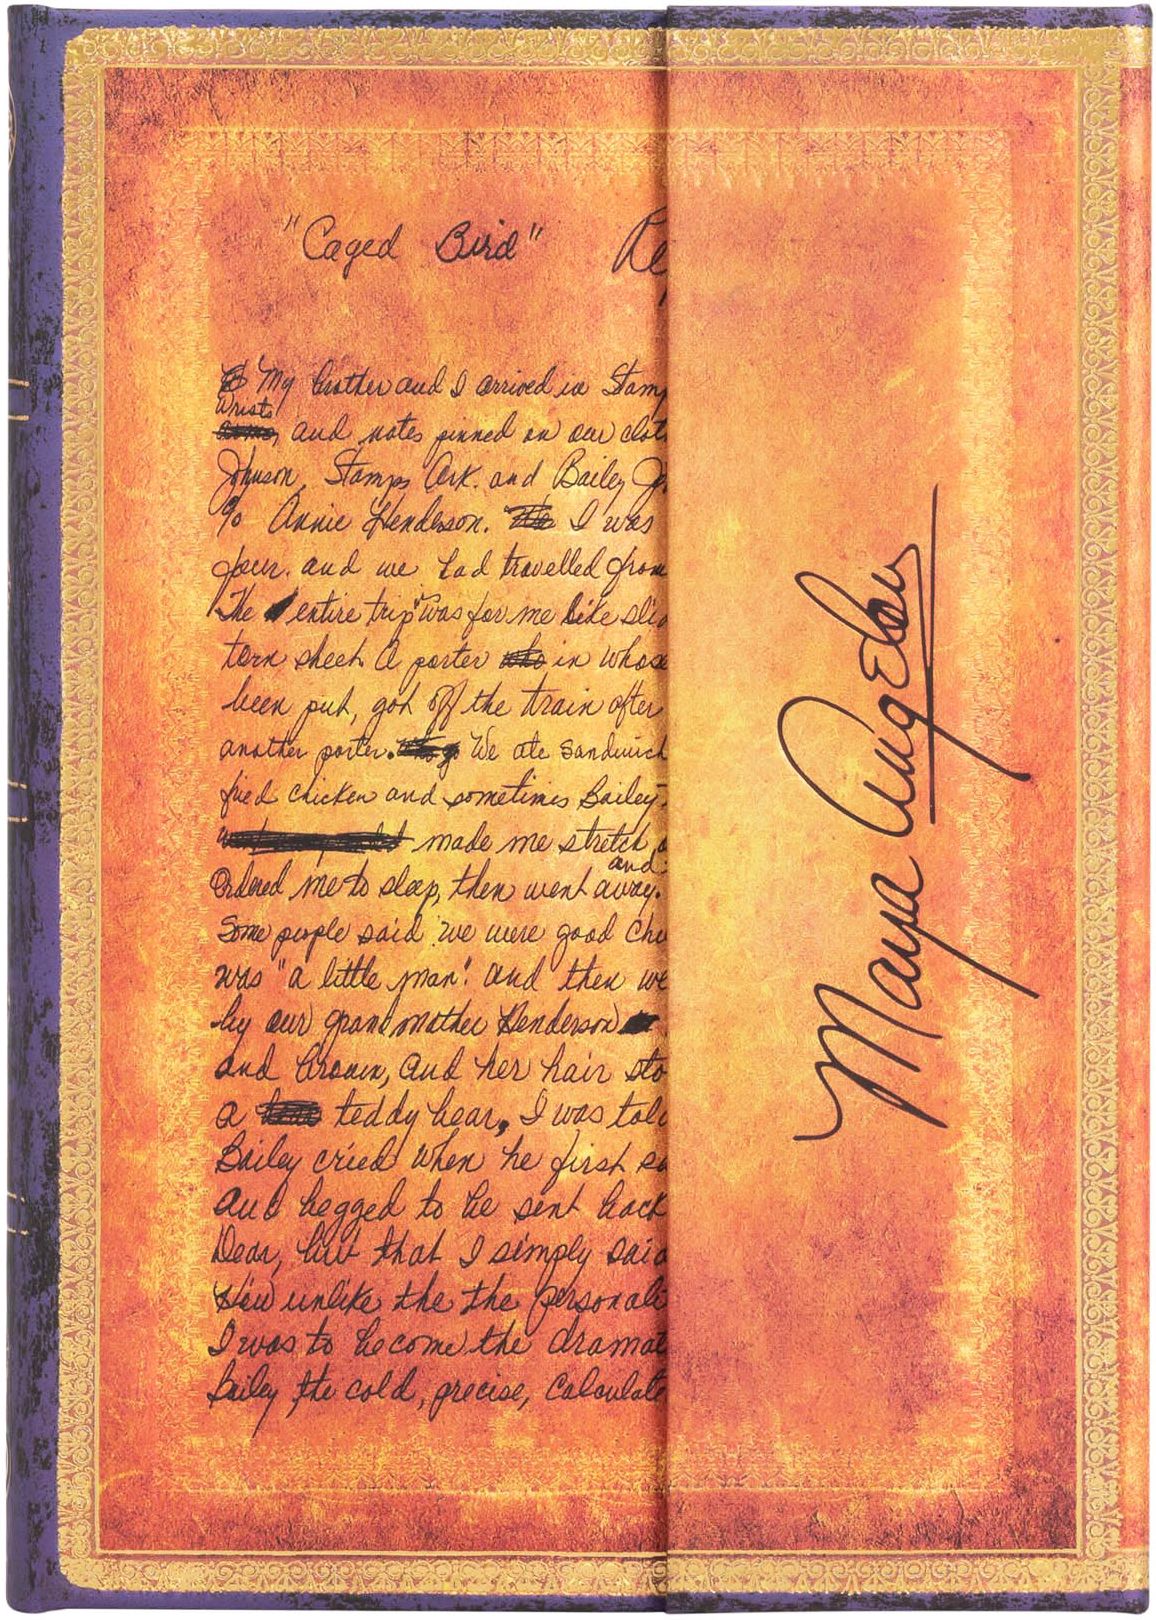 "Caged Bird" Re
My brother and I arrived in Stamp
Wrists
and notes pinned on our cloth
Johnson, Stamps Ark. and Bailey Jo
c/o Annie Henderson. I was
four. and we had travelled from
The entire trip was for me like sli
torn sheet. A porter who in whose
been put, got off the train after
another porter. We ate sandwich
fried chicken and sometimes Bailey
made me stretch o
and
Ordered me to sleep, then went away.
Some people said we were good chi
was "a little man". and then we
by our grandmother Henderson
and brown, and her hair sto
a teddy bear, I was told
Bailey cried when he first sa
and begged to be sent back
Dear, but that I simply said
How unlike the the personali
I was to become the dramat
Bailey the cold, precise, calculate
Maya Angelou